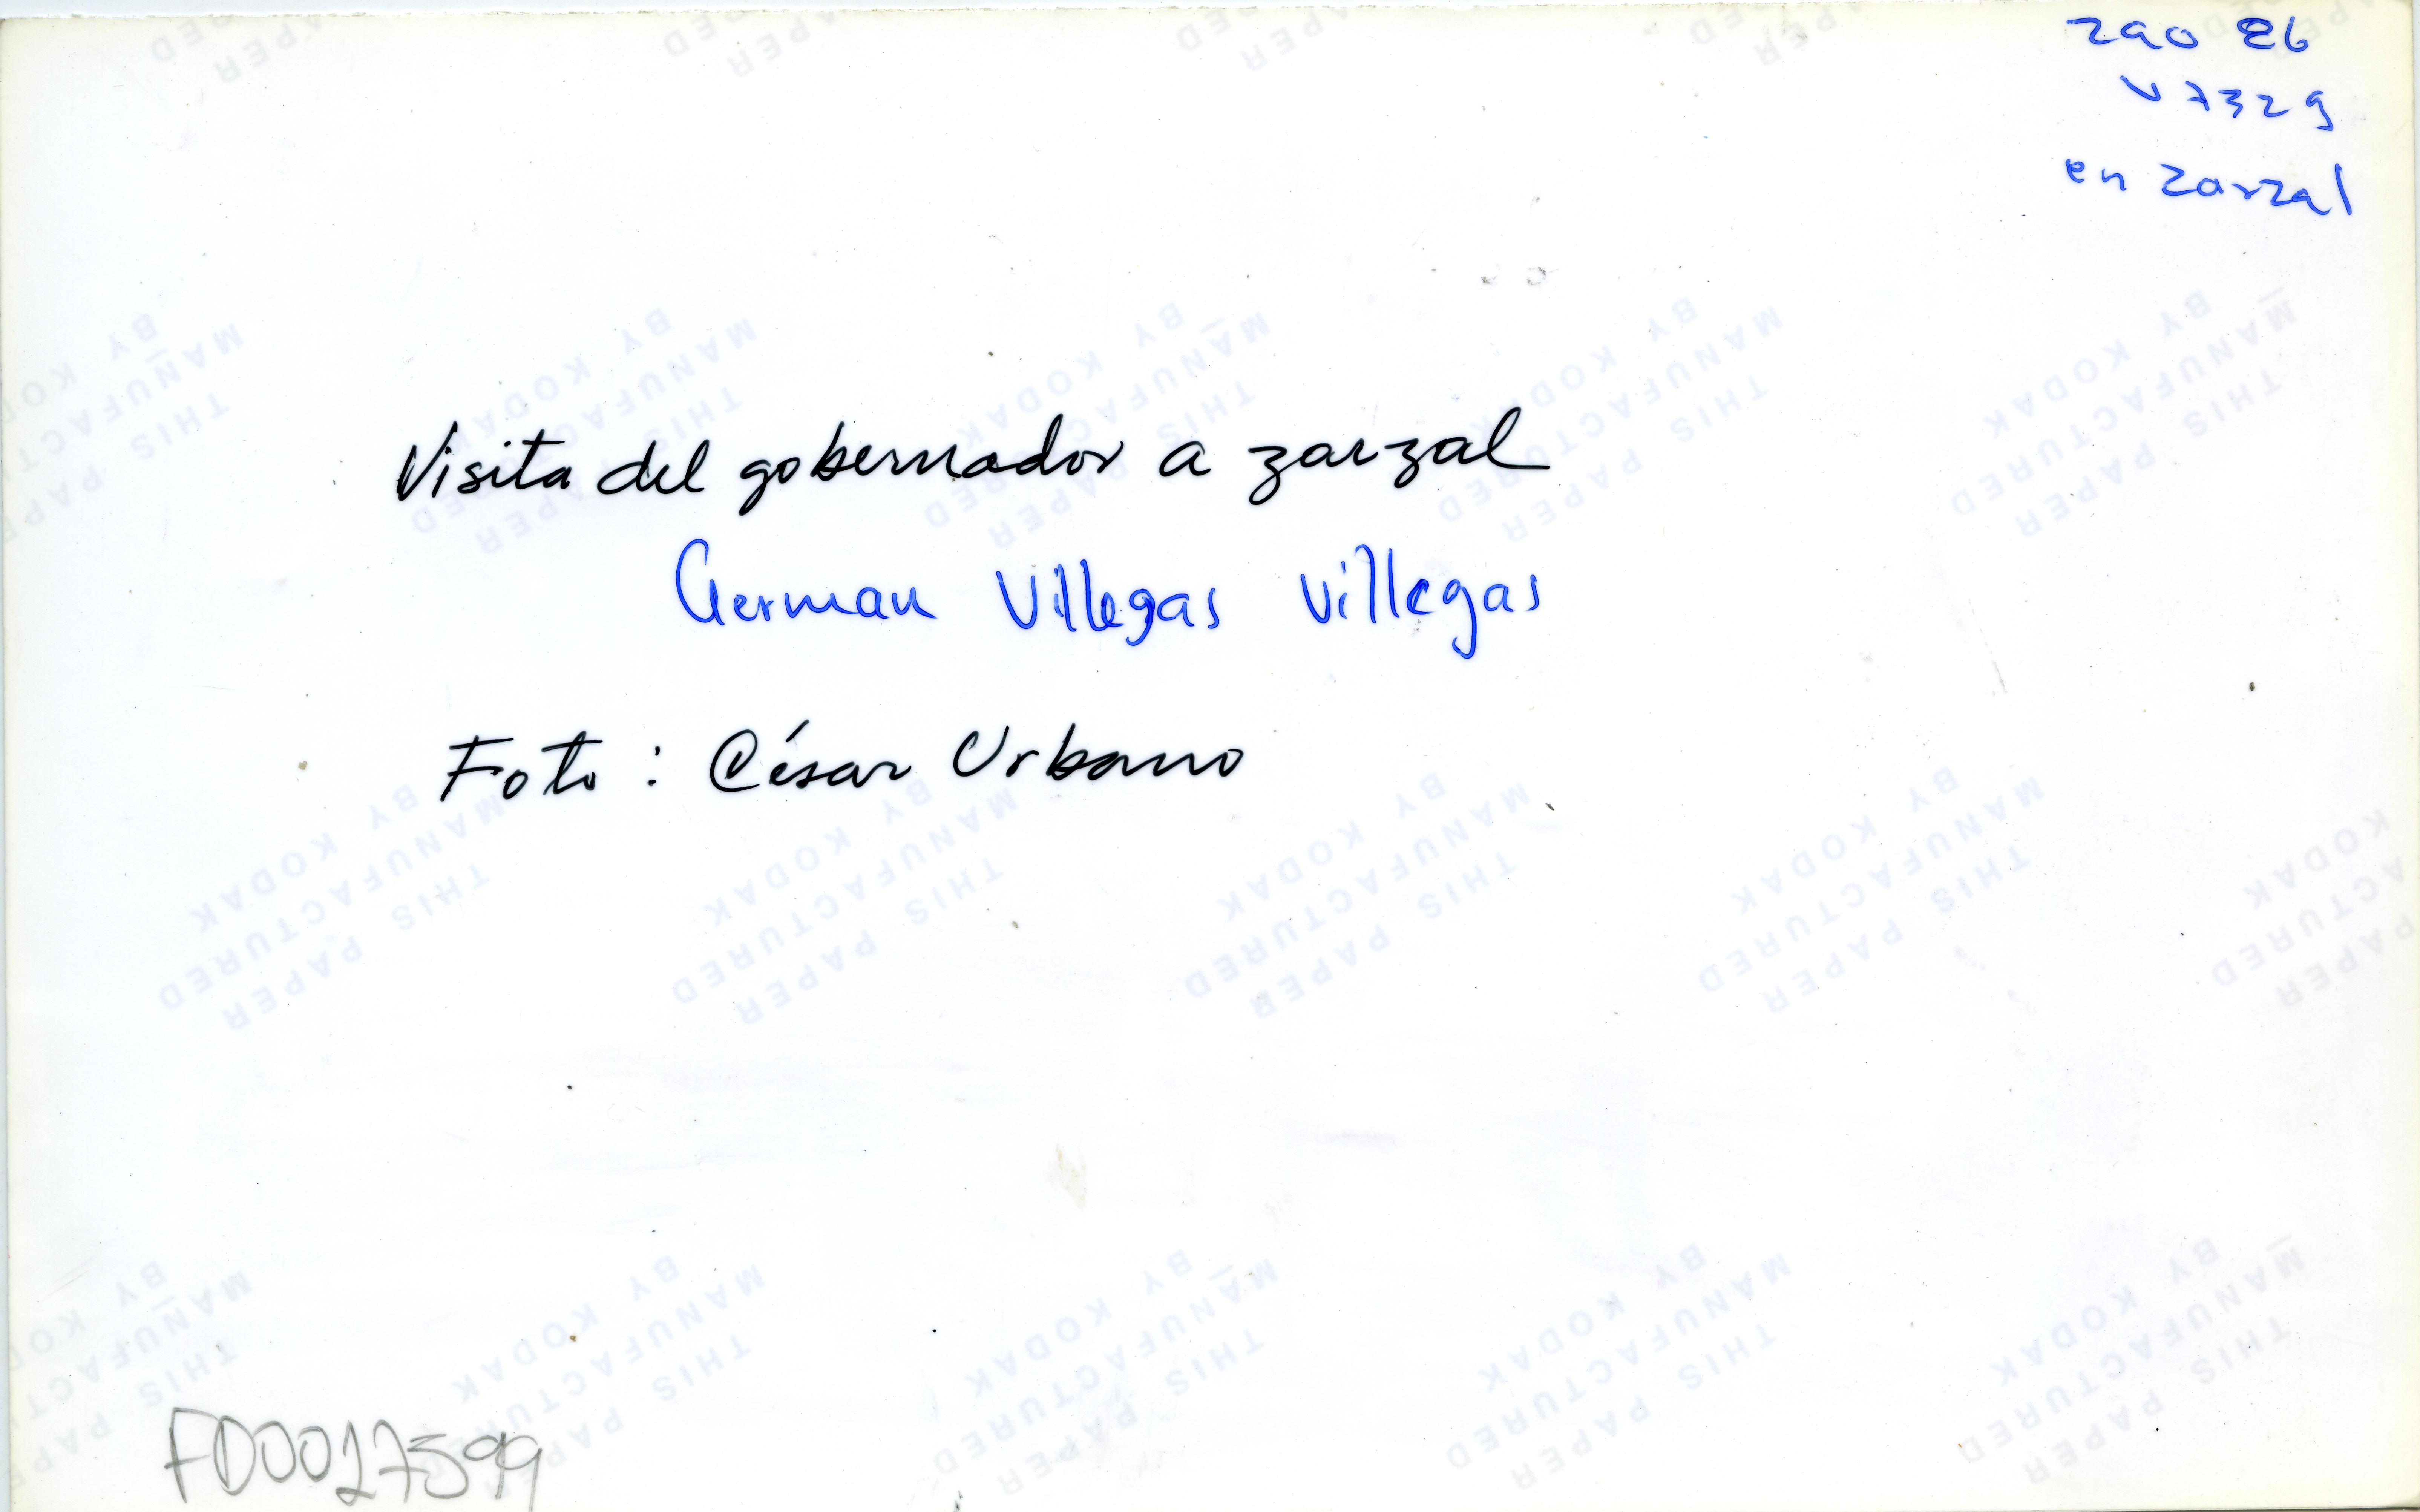 290 86
V732g
en Zarzal
Visita del gobernador a zarzal
German Villegas Villegas
Foto: César Urbano
THIS PAPER
MANUFACTURED
BY KODAK
FD0017599